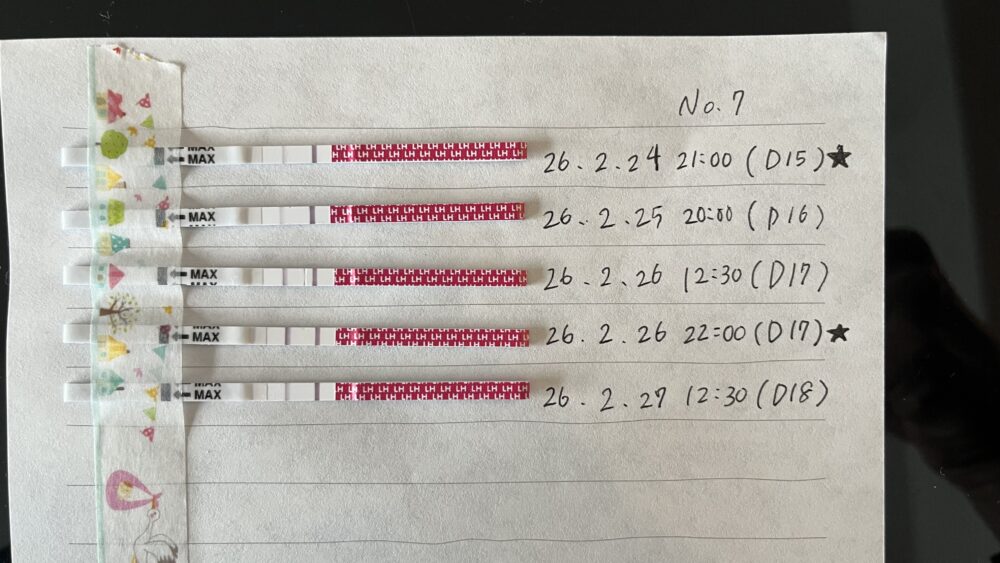 No. 7
MAX
MAX
LH LH LH LH LH LH LH LH LH LH
26. 2. 24 21:00 (D15)★
MAX
LH LH LH LH LH LH LH LH LH LH
26. 2. 25 20:00 (D16)
MAX
LH LH LH LH LH LH LH LH LH LH
26. 2. 26 12:30 (D17)
MAX
MAX
LH LH LH LH LH LH LH LH LH LH
26. 2. 26 22:00 (D17)★
MAX
MAX
LH LH LH LH LH LH LH LH LH LH
26. 2. 27 12:30 (D18)